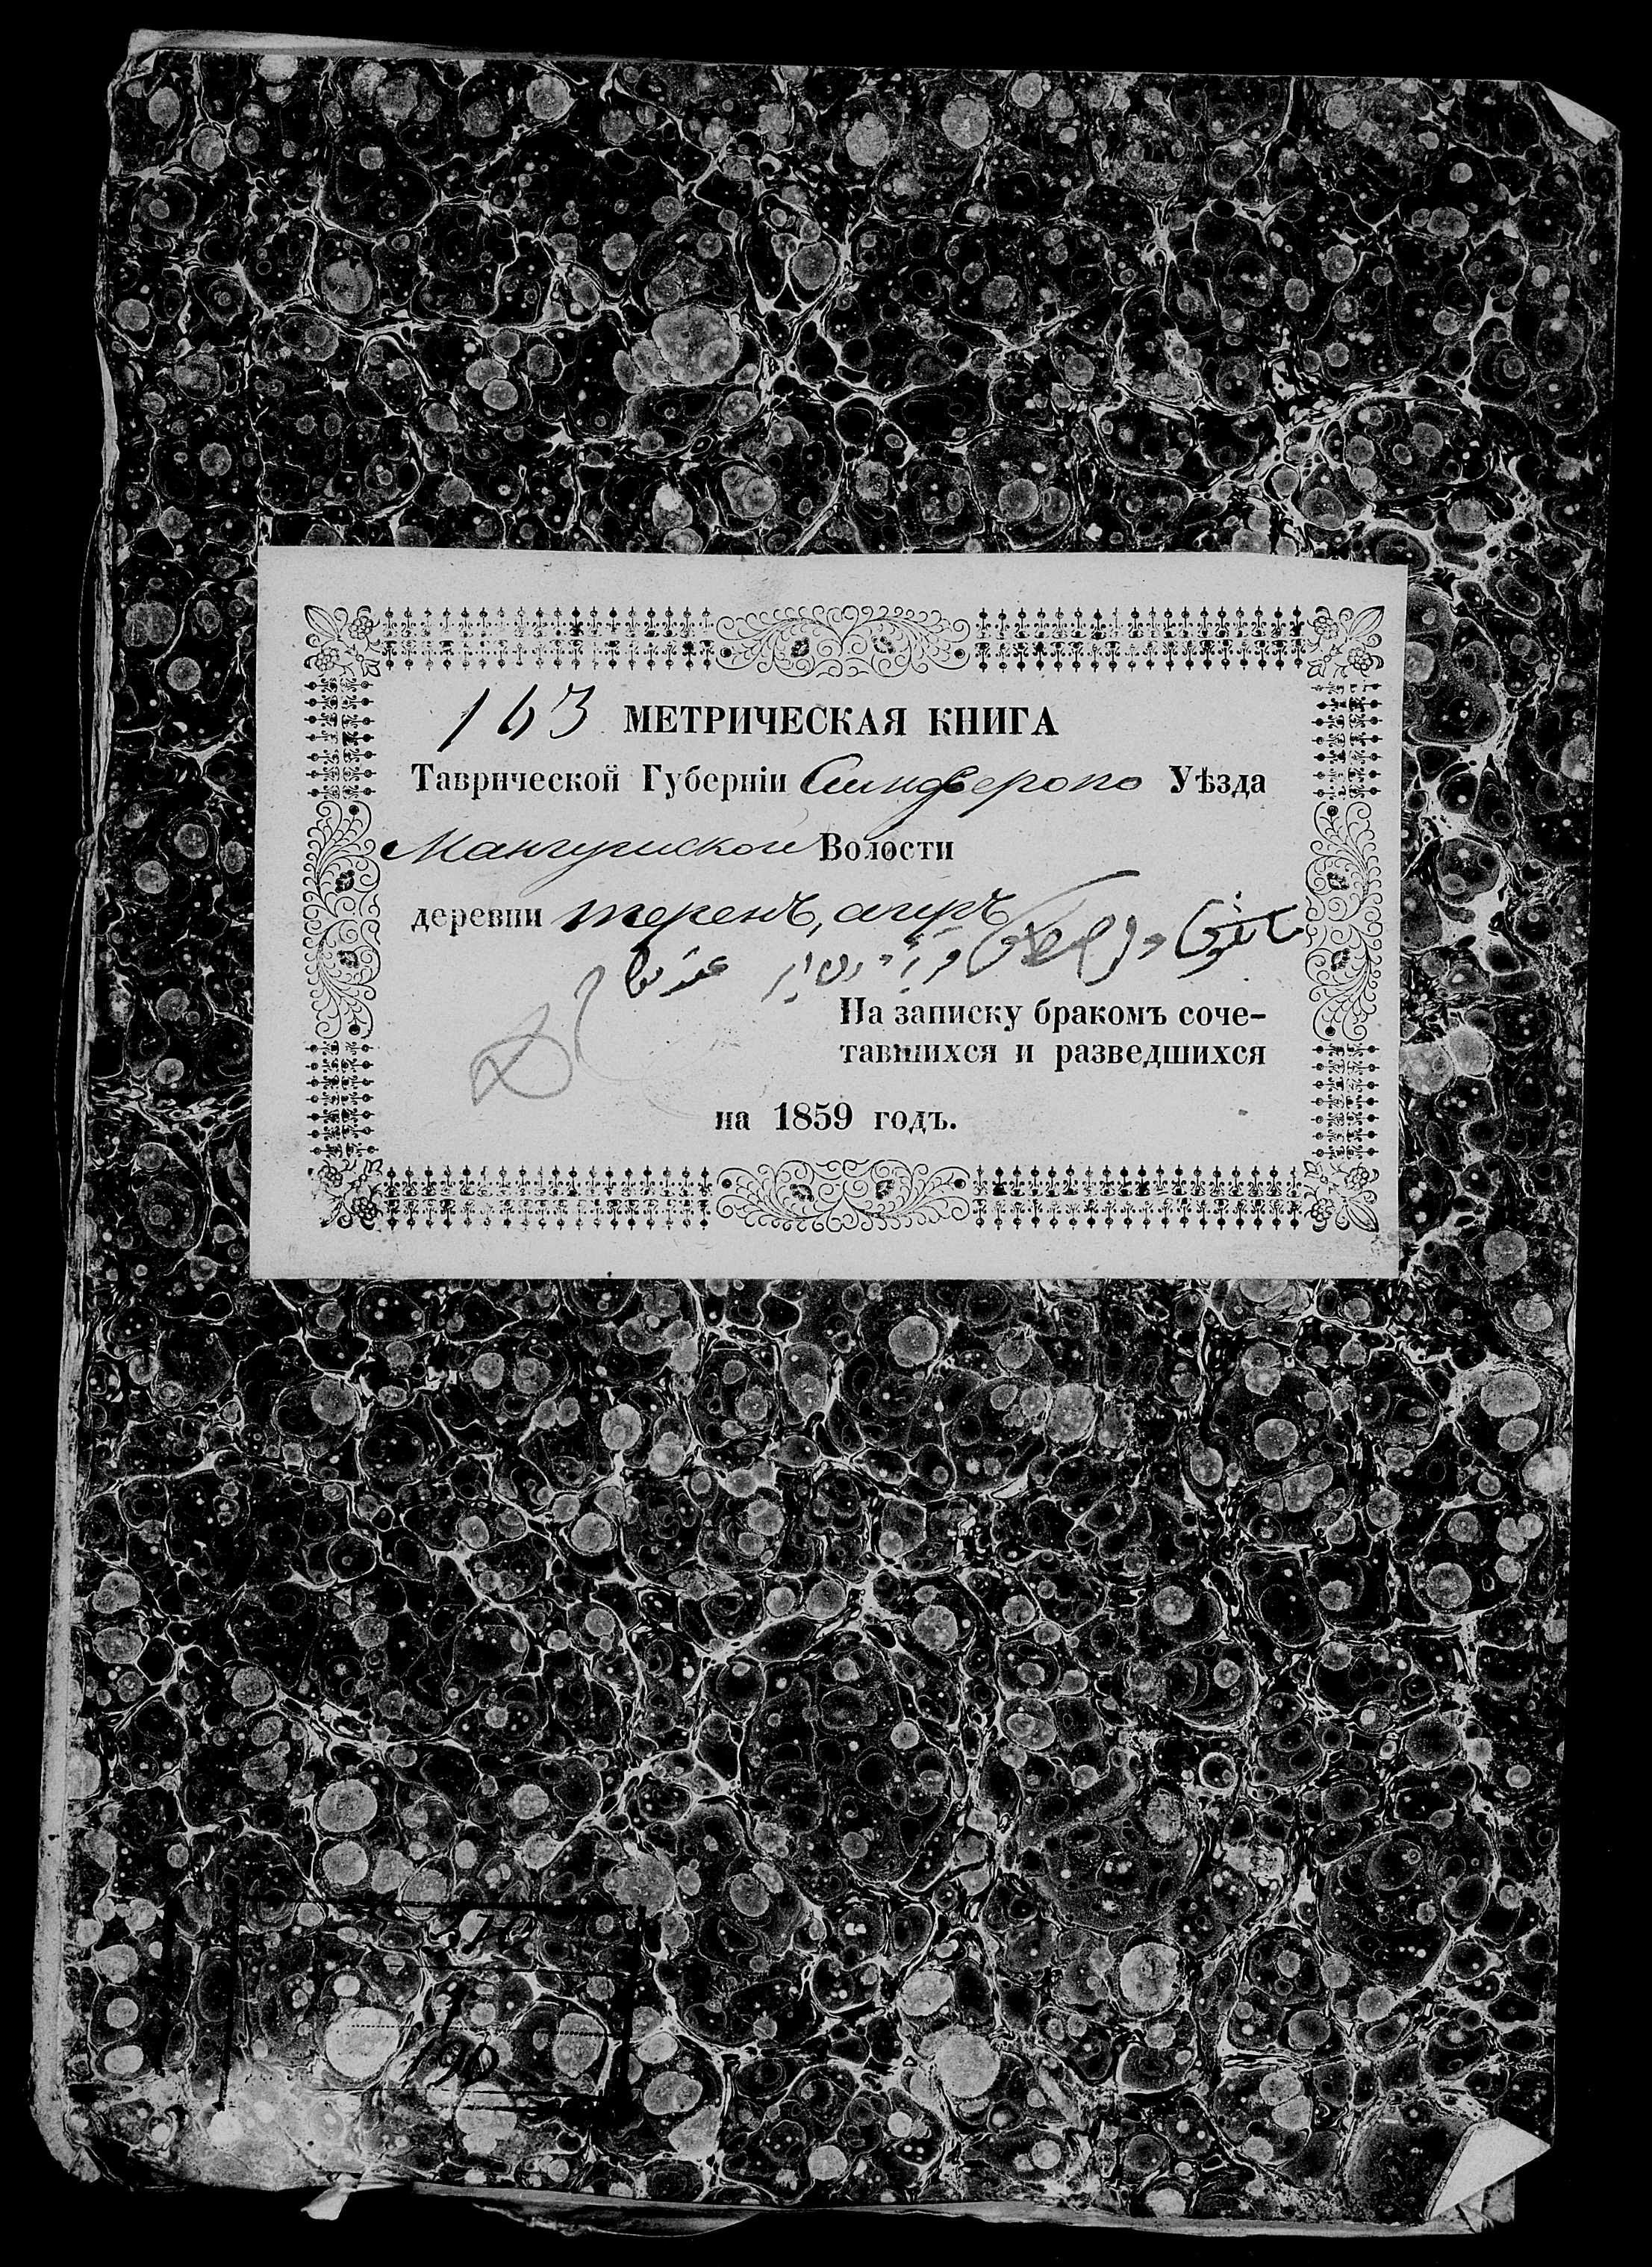 143 МЕТРИЧЕСКАЯ КНИГА
Таврической Губерніи Симферопо Уѣзда
Мангушской Волости
деревни теренъ, аиръ
На записку бракомъ соче-
тавшихся и разведшихся
на 1859 годъ.
1
190